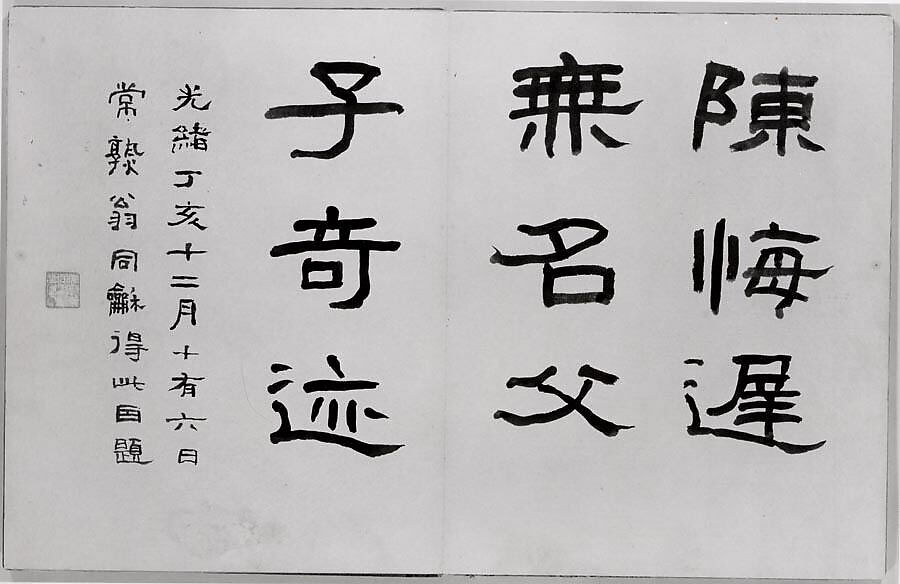 陳悔遲
無名父
子奇迹
光緒丁亥十二月十有六日
常熟翁同龢得此因題